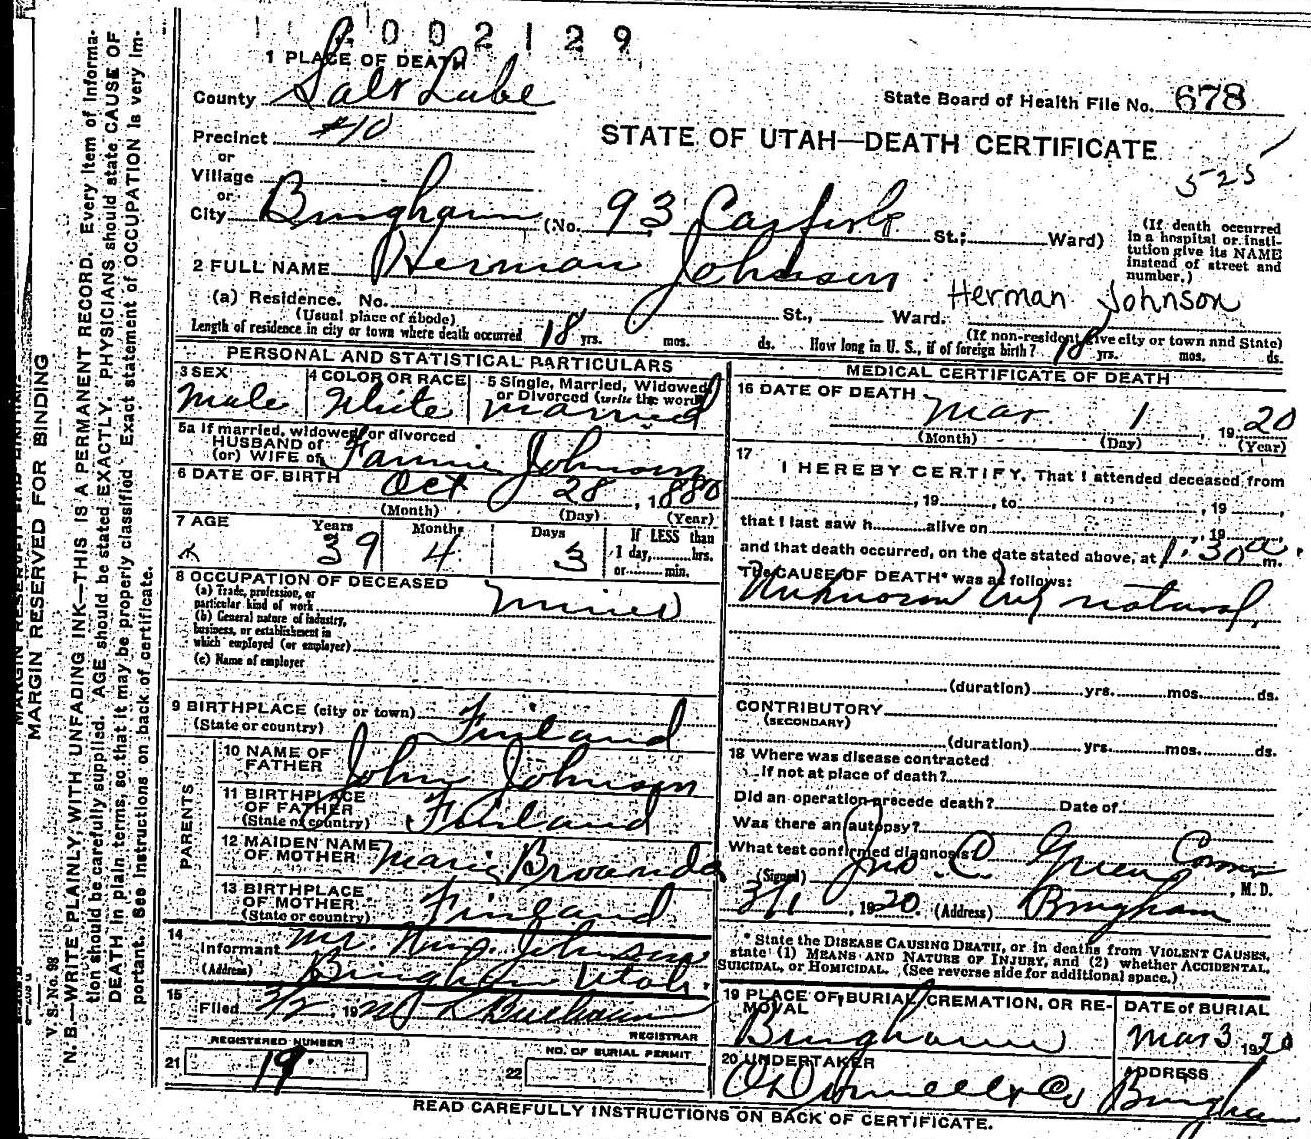 002129
1 PLACE OF DEATH
County Salt Lake
State Board of Health File No. 678
Precinct #10
STATE OF UTAH—DEATH CERTIFICATE
525
or
Village
or
City Bingham (No. 93 Carfork St.; Ward)
(If death occurred in a hospital or institution give its NAME instead of street and number.)
2 FULL NAME Herman Johnson
(a) Residence. No. St., Ward. Herman Johnson
(Usual place of abode) (If non-resident give city or town and State)
Length of residence in city or town where death occurred 18 yrs. mos. ds. How long in U. S., if of foreign birth? 18 yrs. mos. ds.
PERSONAL AND STATISTICAL PARTICULARS
3 SEX 4 COLOR OR RACE 5 Single, Married, Widowed or Divorced (write the word)
Male White Married
5a If married, widowed or divorced
HUSBAND of
(or) WIFE of Fannie Johnson
6 DATE OF BIRTH Oct 28, 1880
(Month) (Day) (Year)
7 AGE Years Months Days If LESS than
39 4 3 1 day, hrs.
or min.
8 OCCUPATION OF DECEASED
(a) Trade, profession, or
particular kind of work Miner
(b) General nature of industry,
business, or establishment in
which employed (or employer)
(c) Name of employer
9 BIRTHPLACE (city or town)
(State or country) Finland
PARENTS
10 NAME OF
FATHER John Johnson
11 BIRTHPLACE
OF FATHER
(State or country) Finland
12 MAIDEN NAME
OF MOTHER Marie
13 BIRTHPLACE
OF MOTHER
(State or country) Finland
14
Informant Mr. Johnson
(Address) Bingham Utah.
15
Filed 3/2 1920
REGISTRAR
REGISTERED NUMBER
21 19
NO. OF BURIAL PERMIT
22
MEDICAL CERTIFICATE OF DEATH
16 DATE OF DEATH
Mar. 1, 1920
(Month) (Day) (Year)
17
I HEREBY CERTIFY, That I attended deceased from
, 19 , to , 19 ,
that I last saw h alive on , 19
and that death occurred, on the date stated above, at 1:30 a. m.
The CAUSE OF DEATH* was as follows:
Unknown but natural.
(duration) yrs. mos. ds.
CONTRIBUTORY
(SECONDARY)
(duration) yrs. mos. ds.
18 Where was disease contracted
If not at place of death?
Did an operation precede death? Date of
Was there an autopsy?
What test confirmed diagnosis?
(Signed) Jno. C. Green Coroner, M. D.
3/1, 1920. (Address) Bingham
* State the DISEASE CAUSING DEATH, or in deaths from VIOLENT CAUSES,
state (1) MEANS AND NATURE OF INJURY, and (2) whether ACCIDENTAL,
SUICIDAL, or HOMICIDAL. (See reverse side for additional space.)
19 PLACE OF BURIAL, CREMATION, OR REMOVAL DATE OF BURIAL
Bingham Mar 3 1920
20 UNDERTAKER ADDRESS
O'Donnell & Co Bingham
READ CAREFULLY INSTRUCTIONS ON BACK OF CERTIFICATE.
MARGIN RESERVED FOR BINDING
V. S. No. 98
N. B.—WRITE PLAINLY, WITH UNFADING INK—THIS IS A PERMANENT RECORD. Every item of information should be carefully supplied. AGE should be stated EXACTLY. PHYSICIANS should state CAUSE OF
DEATH in plain terms, so that it may be properly classified. Exact statement of OCCUPATION is very important. See instructions on back of certificate.